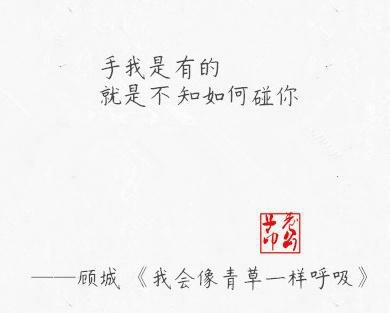 手我是有的
就是不知如何碰你
——顾城《我会像青草一样呼吸》